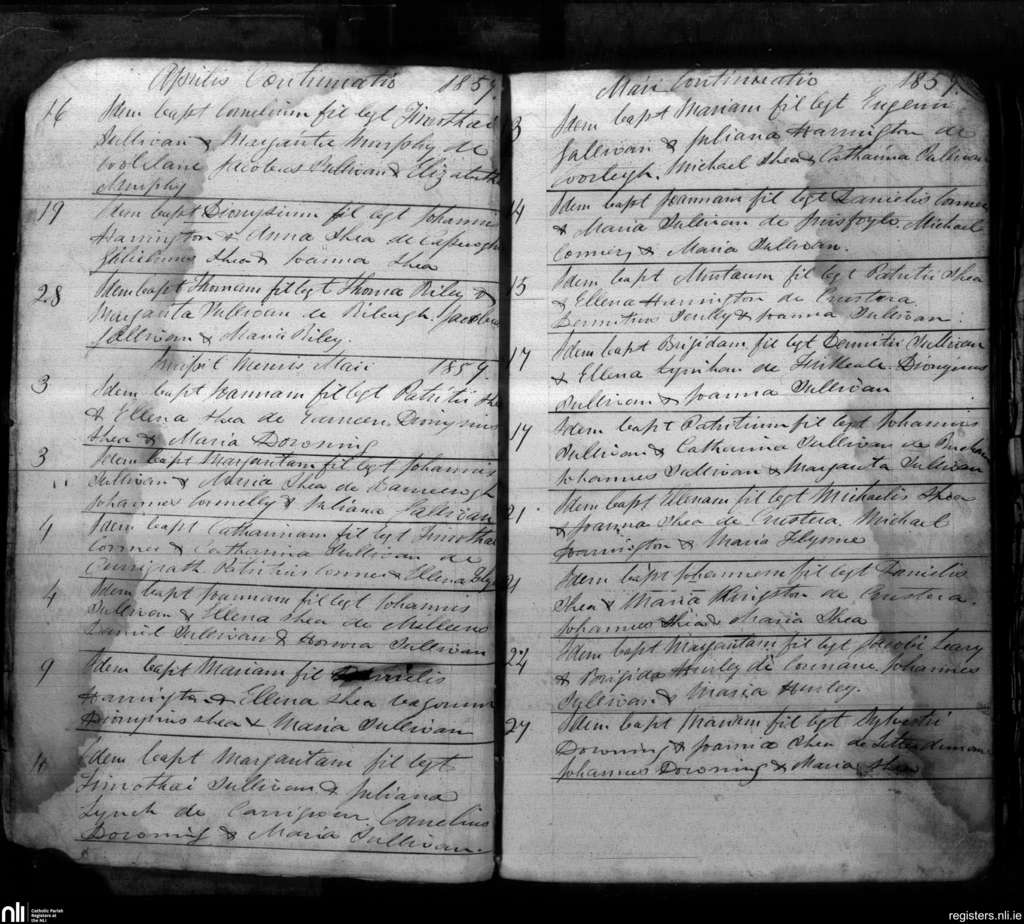 Aprilis Continuatio 1859.
16 Idem bapt Cornelium fil legt Timothai
Sullivan & Margarita Murphy de
Jacobus Sullivan & Elizabetha
Murphy
19 Idem bapt Dionysium fil legt Johannis
Harrington & Anna Shea de
Shea & Joanna Shea
28 Idem bapt Thomam fil legt Thoma Riley &
Margarita Sullivan de Rileagh. Jacobus
Sullivan & Maria Riley.
Mensis Maii 1859.
3 Idem bapt Joannam fil legt Patritii Shea
& Ellena Shea de Dionysius
Shea & Maria Downing
3 Idem bapt Margaritam fil legt Johannis
Sullivan & Maria Shea de
Johannes Connelly & Juliana Sullivan
4 Idem bapt Catharinam fil legt Timothai
Connor & Catharina Sullivan de
Patritius Connor & Ellena
4 Idem bapt Joannam fil legt Johannis
Sullivan & Ellena Shea de
Daniel Sullivan & Honora Sullivan
9 Idem bapt Mariam fil Danielis
Harrington & Ellena Shea vagorum
Dionysius Shea & Maria Sullivan
10 Idem bapt Margaritam fil legt
Timothai Sullivan & Juliana
Lynch de Cornelius
Downing & Maria Sullivan.
Maii Continuatio 1859.
13 Idem bapt Mariam fil legt Eugenii
Sullivan & Juliana Harrington de
Michael Shea & Catharina Sullivan
14 Idem bapt Joannam fil legt Danielis Connor
& Maria Sullivan de Michael
& Maria Sullivan.
15 Idem bapt fil legt Patritii Shea
& Ellena Harrington de Crustera.
Dermitius Scully & Joanna Sullivan.
17 Idem bapt Brigidam fil legt Dermitii Sullivan
& Ellena Lynihan de Dionysius
Sullivan & Joanna Sullivan
17 Idem bapt Patritium fil legt Johannis
Sullivan & Catharina Sullivan de
Johannes Sullivan & Margarita Sullivan
21. Idem bapt Elenam fil legt Michaelis Shea
& Joanna Shea de Crustera. Michael
Harrington & Maria Flynne
21 Idem bapt Johannem fil legt Danielis
Shea & Maria Kingston de Crustera.
Johannes Shea & Maria Shea
24 Idem bapt Margaritam fil legt Leary
& Brigida Hurley de Johannes
Sullivan & Maria Hurley.
27 Idem bapt Mariam fil legt Sylvestri
Downing & Joanna Shea de
Johannes Downing & Maria Shea
nli Catholic Parish
Registers at
the NLI
registers.nli.ie